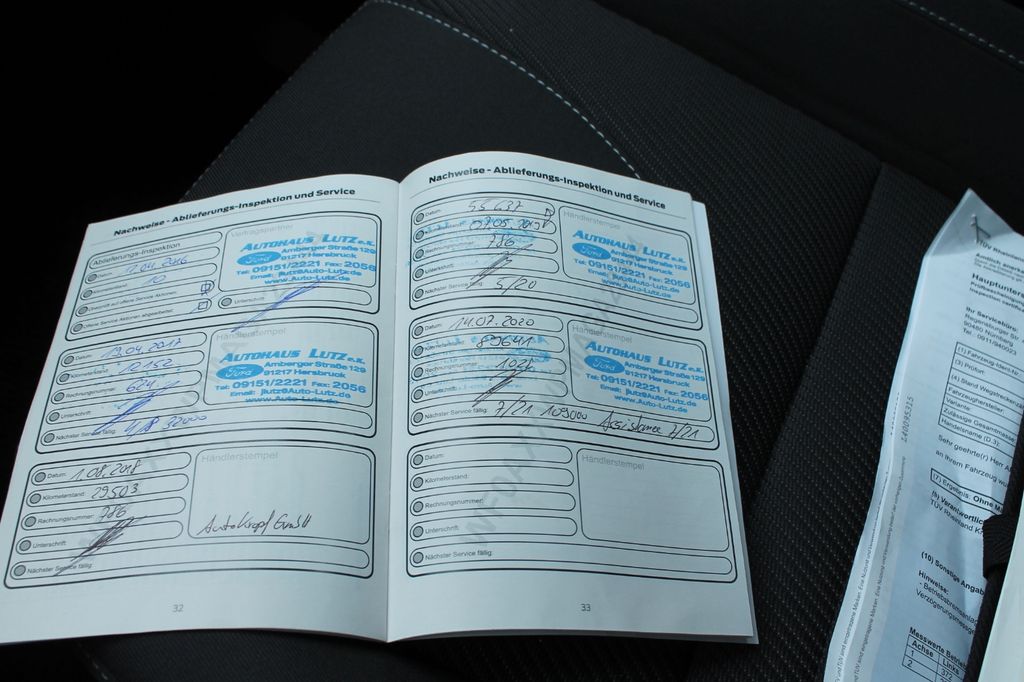 Nachweise - Ablieferungs-Inspektion und Service
Ablieferungs-Inspektion
Vertragspartner
Datum: 12.04.2016
10
Offene Service Aktionen abgearbeitet:
Unterschrift:
AUTOHAUS LUTZ e.K.
Ford
Amberger Straße 129
91217 Hersbruck
Tel: 09151/2221 Fax: 2056
Email: jlutz@Auto-Lutz.de
www.Auto-Lutz.de
Datum: 19.04.2017
Kilometerstand: 12152
Rechnungsnummer: 624
Unterschrift:
Nächster Service fällig: 4/18
Händlerstempel
AUTOHAUS LUTZ e.K.
Ford
Amberger Straße 129
91217 Hersbruck
Tel: 09151/2221 Fax: 2056
Email: jlutz@Auto-Lutz.de
www.Auto-Lutz.de
Datum: 1.08.2018
Kilometerstand: 29503
Rechnungsnummer: 786
Unterschrift:
Nächster Service fällig:
Händlerstempel
Autokropf GmbH
32
Nachweise - Ablieferungs-Inspektion und Service
Datum: 55637
07.05.2019
Rechnungsnummer: 786
Unterschrift:
Nächster Service fällig: 5/20
Händlerstempel
AUTOHAUS LUTZ e.K.
Ford
Amberger Straße 129
91217 Hersbruck
Tel: 09151/2221 Fax: 2056
Email: jlutz@Auto-Lutz.de
www.Auto-Lutz.de
Datum: 14.07.2020
Kilometerstand: 89641
Rechnungsnummer: 1027
Unterschrift:
Nächster Service fällig: 7/21 109000 Assistance 7/21
Händlerstempel
AUTOHAUS LUTZ e.K.
Ford
Amberger Straße 129
91217 Hersbruck
Tel: 09151/2221 Fax: 2056
Email: jlutz@Auto-Lutz.de
www.Auto-Lutz.de
Datum:
Kilometerstand:
Rechnungsnummer:
Unterschrift:
Nächster Service fällig:
Händlerstempel
33
TÜV Rheinland
Hauptunter
Ihr Servicebüro:
Regensburger Str
90480 Nürnberg
Tel 0911/940023
(1) Fahrzeug-Ident-Nr
(3) Prüfort:
(4) Stand Wegstrecken
Fahrzeughersteller:
Variante:
Zulässige Gesamtmasse
Handelsname (D.3):
Sehr geehrte(r) Herr
an Ihrem Fahrzeug wu
(7) Ergebnis: Ohne M
(9) Verantwortlic
TÜV Rheinland K
(10) Sonstige Angab
Hinweise:
- Betriebsbremsanl
Verzögerungsmessge
Messwerte Betrieb
Achse Links
1 373
2